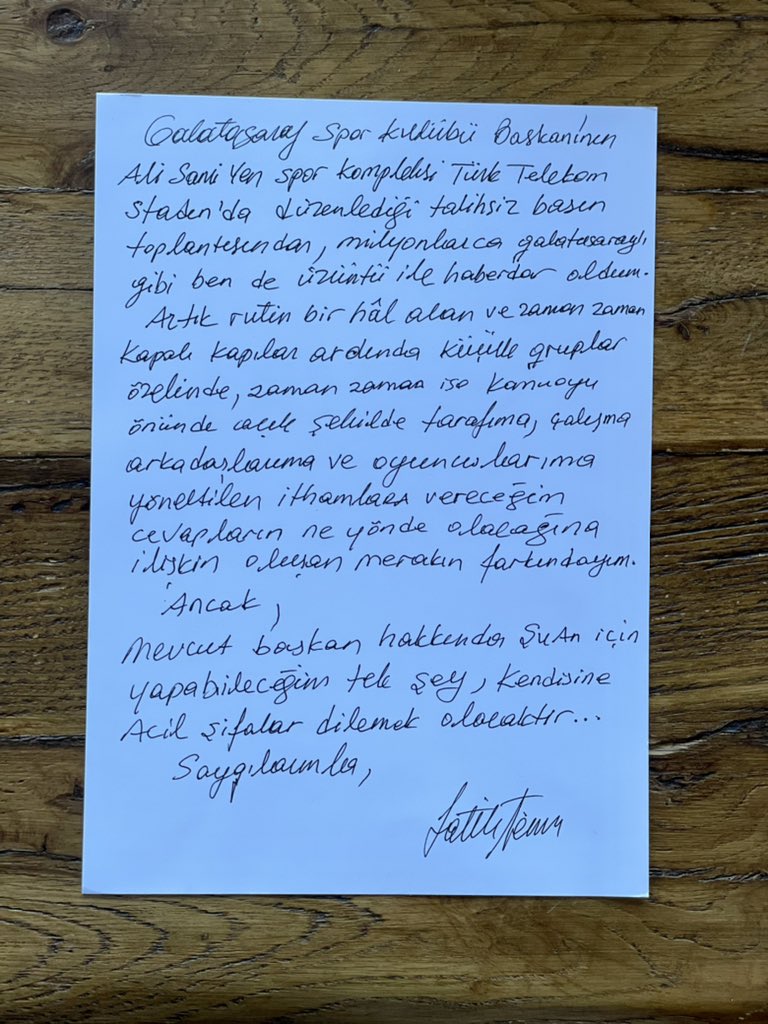 Galatasaray Spor Kulübü Başkanının
Ali Sami Yen Spor Kompleksi Türk Telekom
Stadın'da düzenlediği talihsiz basın
toplantısından, milyonlarca galatasaraylı
gibi ben de üzüntü ile haberdar oldum.
Artık rutin bir hâl alan ve zaman zaman
kapalı kapılar ardında küçük gruplar
özelinde, zaman zaman ise kamuoyu
önünde açık şekilde tarafıma, çalışma
arkadaşlarıma ve oyuncularıma
yöneltilen ithamlara vereceğim
cevapların ne yönde olacağına
ilişkin oluşan merakın farkındayım.
Ancak,
Mevcut başkan hakkında şuan için
yapabileceğim tek şey, kendisine
Acil şifalar dilemek olacaktır...
Saygılarımla,
Fatih Terim